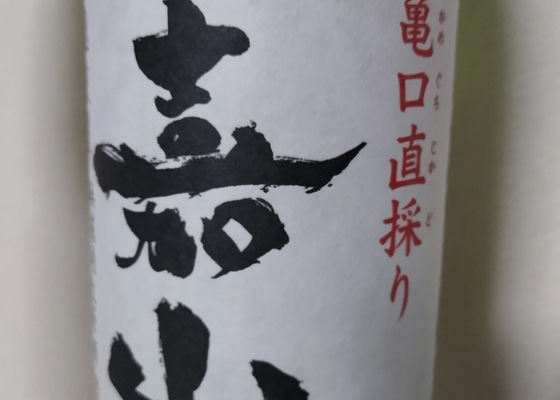 亀口直採り
かめぐちじかど
嘉山